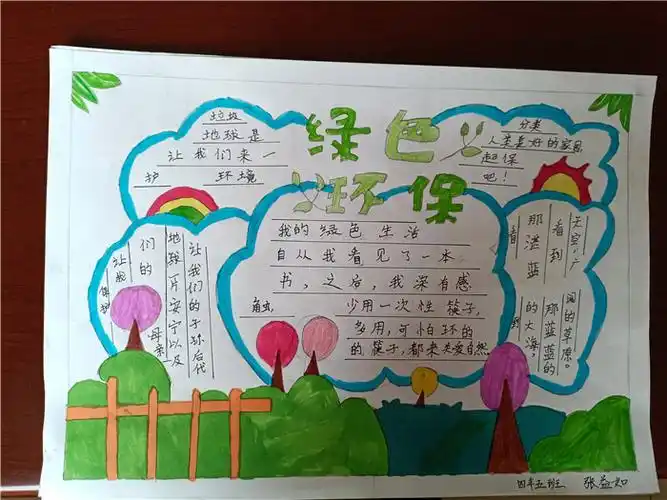 绿色
环保
垃圾
地球是
让我们来一
护 环境
分类
人类美好的家园
起保
吧！
我的绿色生活
自从我看见了一本
书，之后，我深有感
触， 少用一次性筷子，
多用，可怕环的
的筷子，都来关爱自然
让我们的子孙后代
地球片安宁以及
母亲
们的
让我
保护
天空，广
看到
那湛蓝
看
阔的草原。
那蓝蓝的
的大海。
到
四年五班 张益如